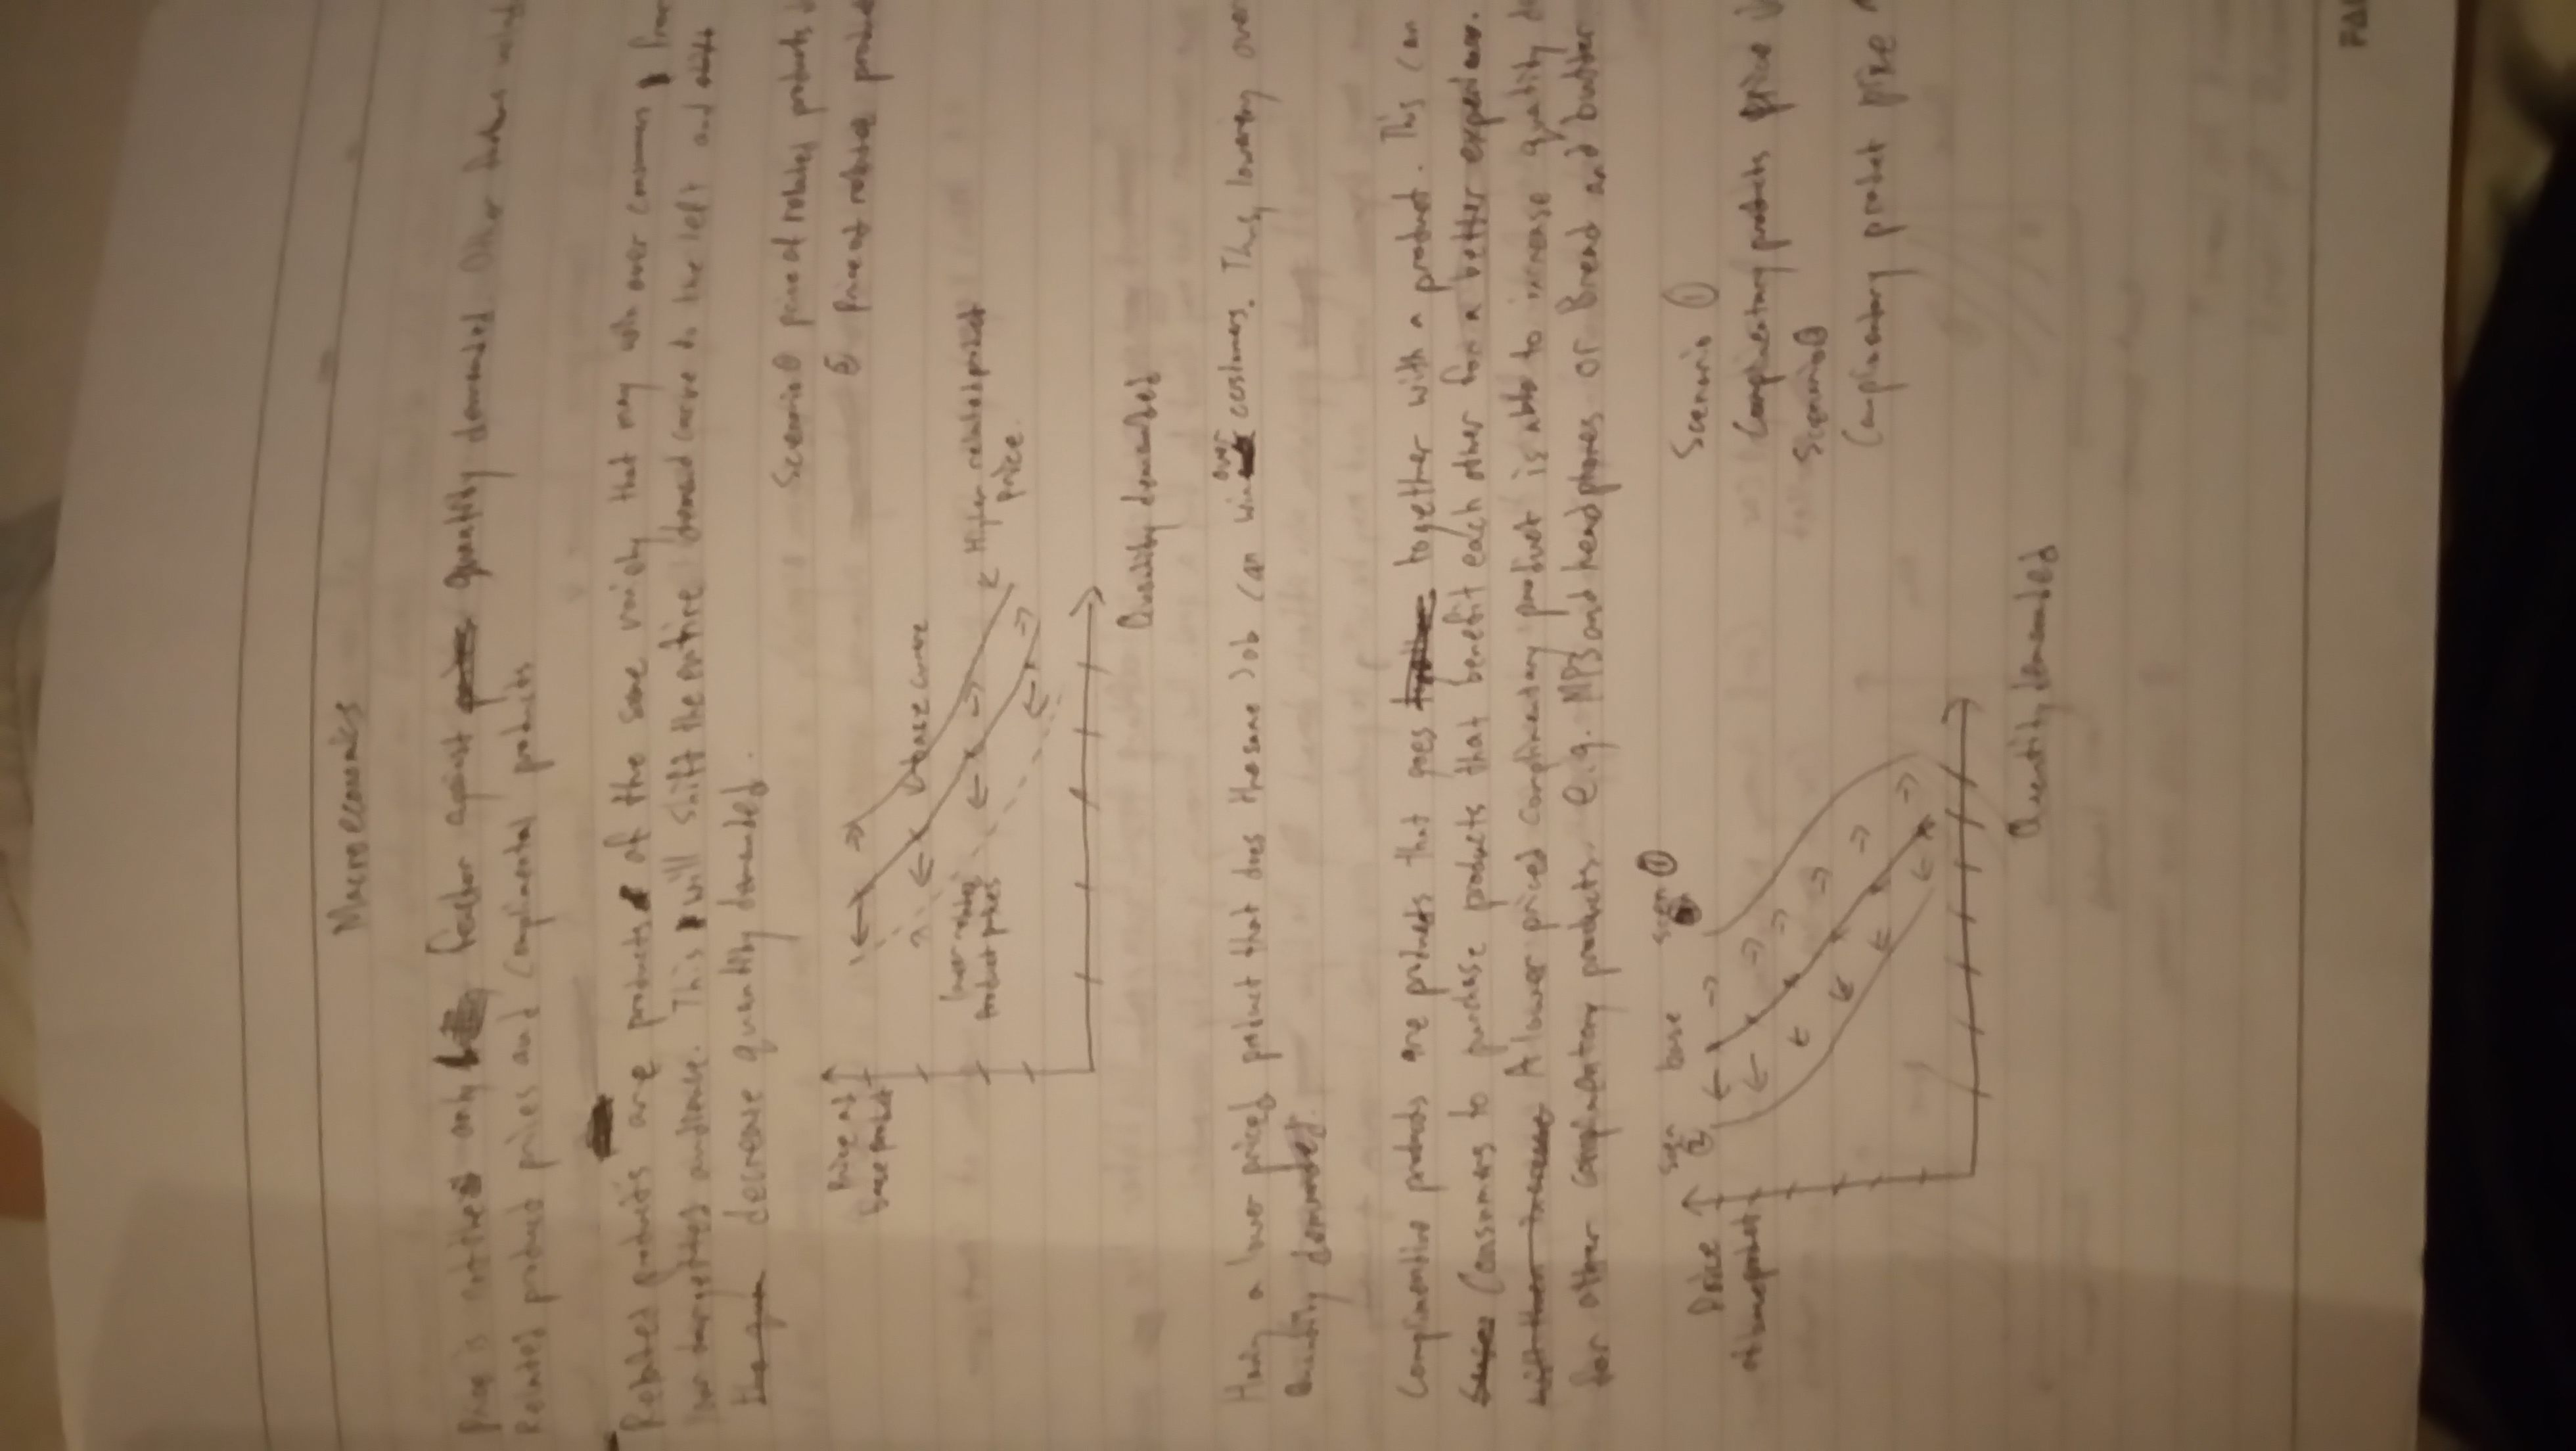 Macroeconomics
Price is not the only factor against quantity demanded. Other
Related product prices and Complimental products
Related products are products of the same that may win over consumers
targetted audience. This will shift the entire demand curve to the left and
decrease quantity demanded.
Scenario ① price of related products
② Price of related
Price of
base product
base curve
lower related
product prices
Higher related product
price.
Quantity demanded
Having a lower priced product that does the same Job can win over customers. Thus, lowering
Quantity demanded.
products are products that goes together with a product. This can
Consumers to purchase products that benefit each other for a better experience.
A lower priced complimentary product is able to increase
for other complimentary products. e.g. MP3 and headphones or Bread and butter
scen ② base scen ①
Price
of base product
Scenario ①
Complimentary products price
Scenario ②
Complimentary product price
Quantity demanded